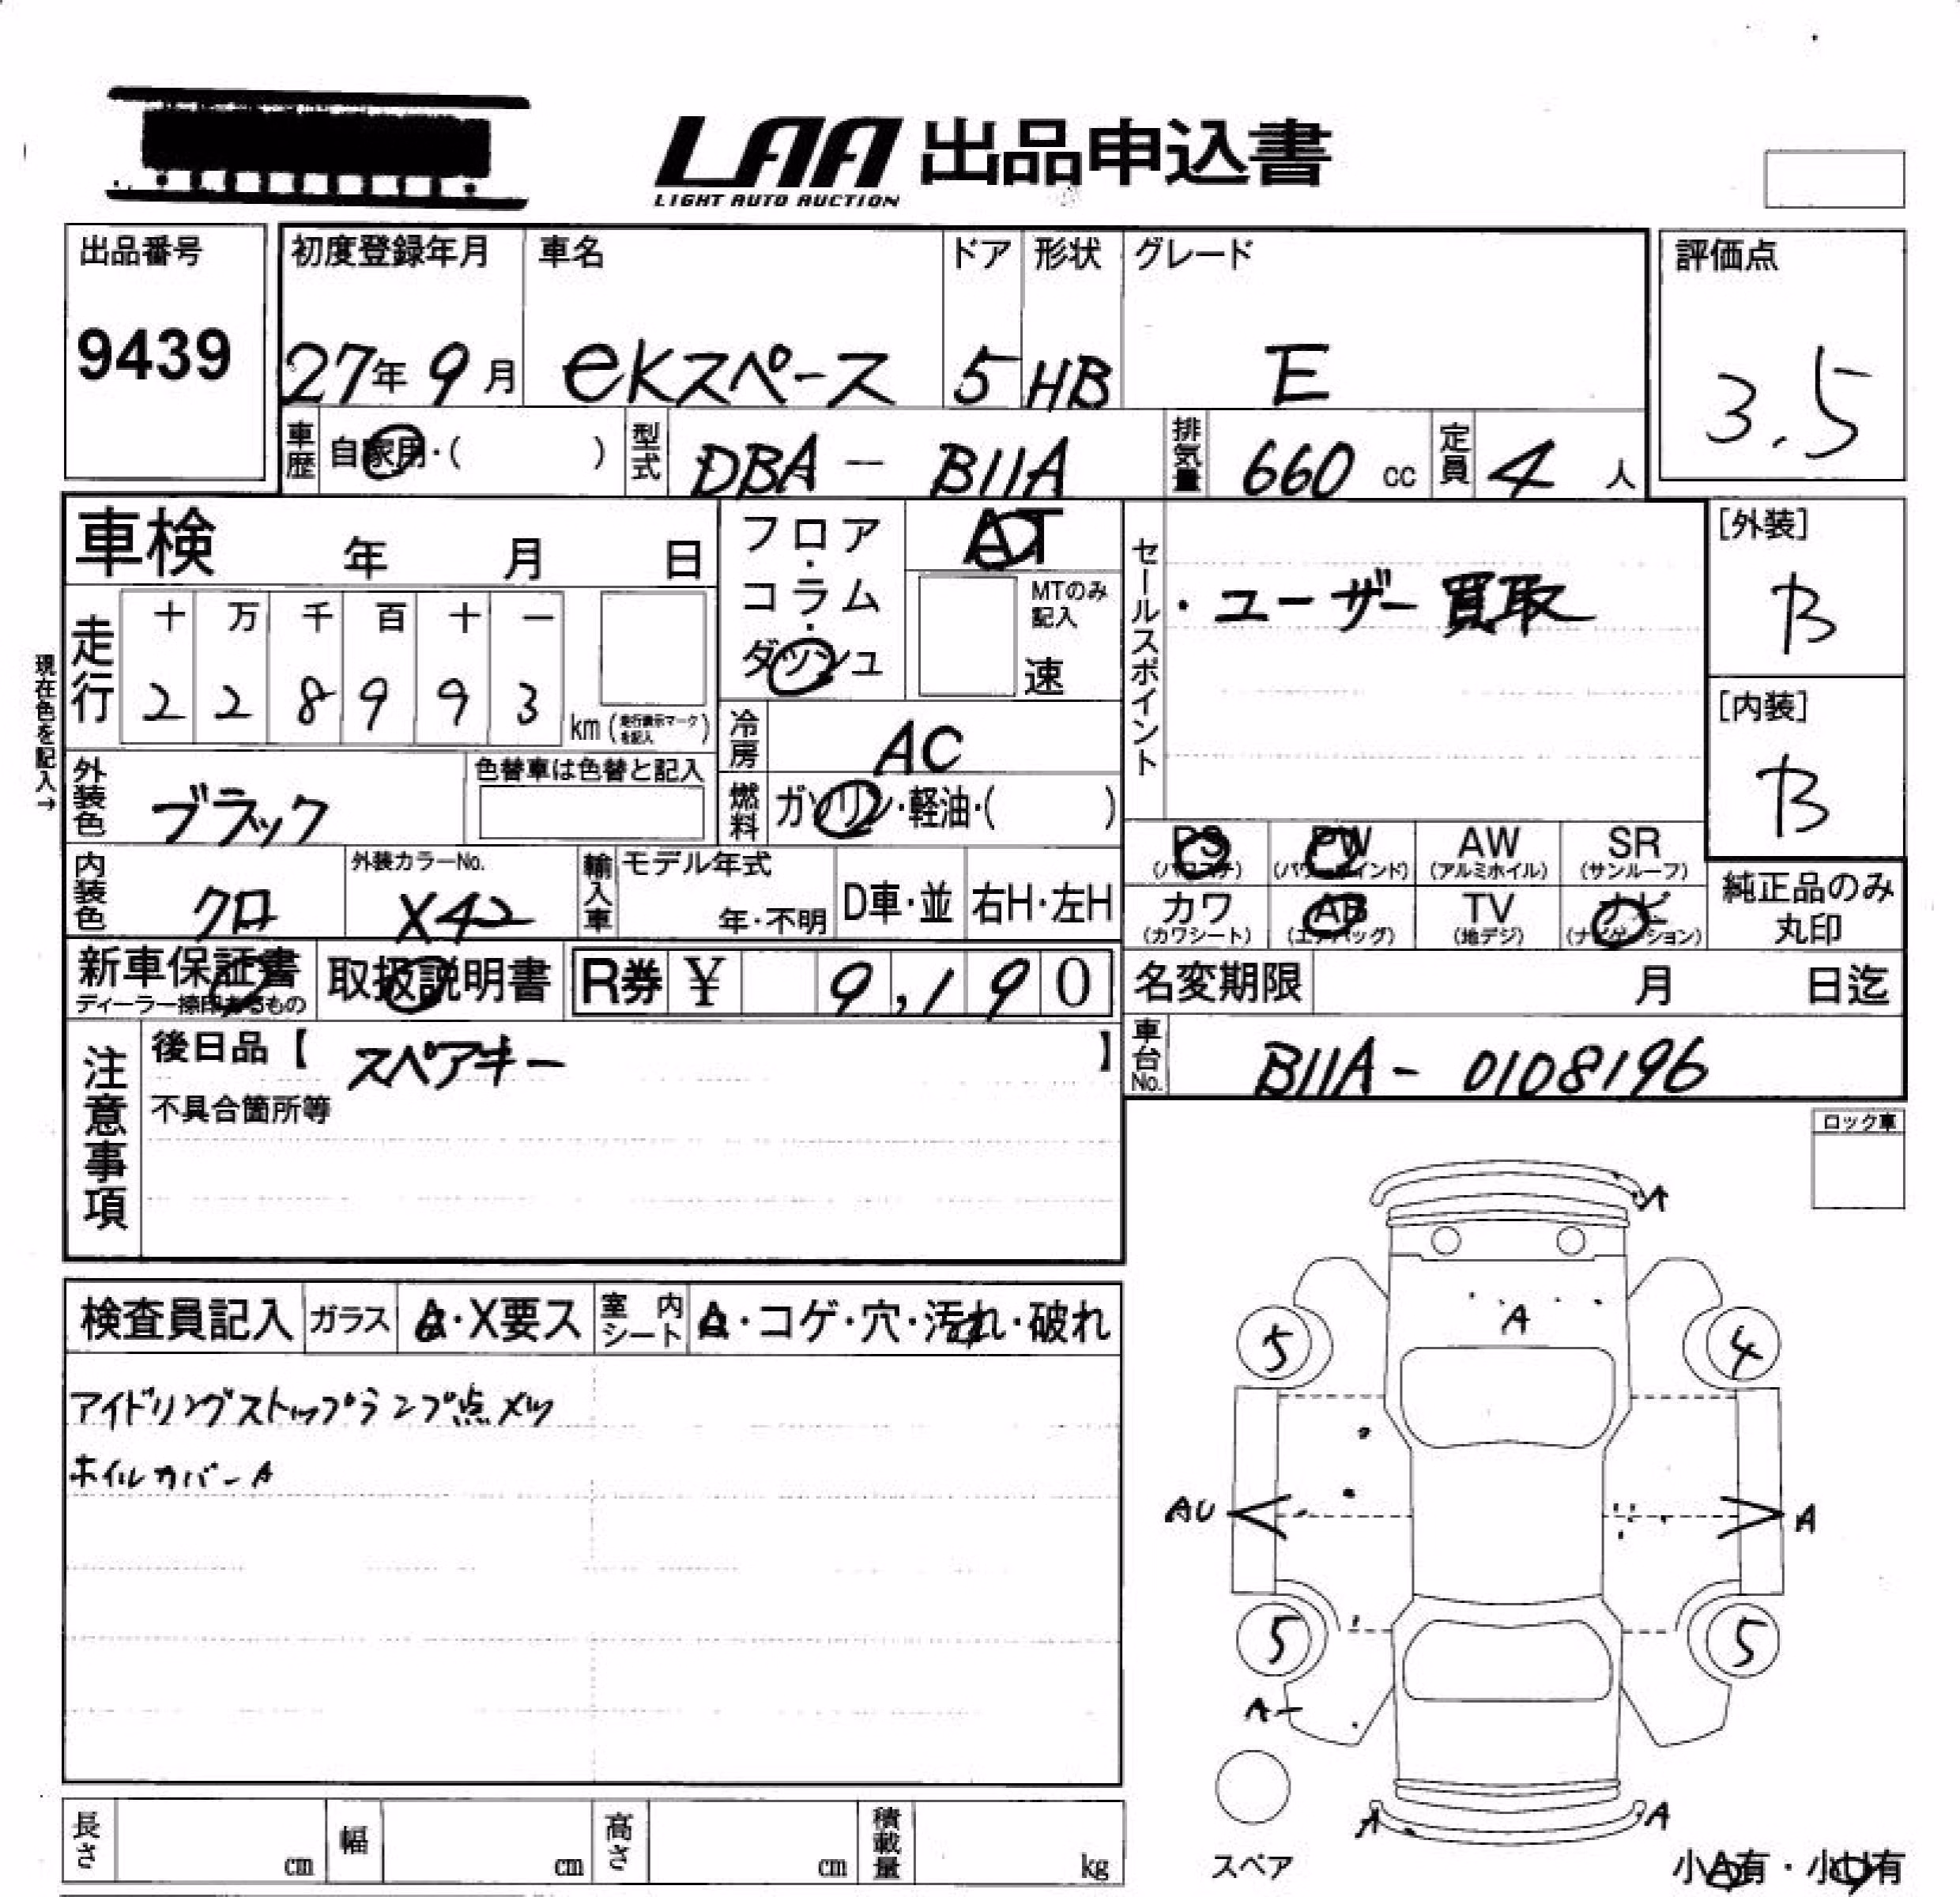 LAA 出品申込書
LIGHT AUTO AUCTION
出品番号
9439
初度登録年月
27年 9月
車名
eKスペース
ドア
5
形状
HB
グレード
E
評価点
3.5
車歴
自家用・( )
型式
DBA - B11A
排気量
660 cc
定員
4 人
車検 年 月 日
フロア・コラム・ダッシュ
AT
MTのみ記入
速
セールスポイント
・ユーザー買取
[外装]
B
[内装]
B
現在色を記入→
走行
十 万 千 百 十 一
2 2 8 9 9 3
km (走行表示マークを記入)
冷房
AC
燃料
ガソリン・軽油・( )
外装色
ブラック
色替車は色替と記入
内装色
クロ
外装カラーNo.
X42
輸入車
モデル年式
年・不明
D車・並
右H・左H
PS (パワステ)
PW (パワーウインド)
AW (アルミホイル)
SR (サンルーフ)
カワ (カワシート)
AB (エアバッグ)
TV (地デジ)
ナビ (ナビゲーション)
純正品のみ丸印
新車保証書
ディーラー捺印あるもの
取扱説明書
R券 ¥ 9,190
名変期限 月 日迄
車台No.
B11A - 0108196
注意事項
後日品【 スペアキー 】
不具合箇所等
ロック車
検査員記入
ガラス
A・X要ス
室内シート
A・コゲ・穴・汚れ・破れ
アイドリングストップランプ点メツ
ホイルカバーA
A
A
5
4
AU
A
5
5
A
A
A
スペア
小A有・小U有
長さ cm
幅 cm
高さ cm
積載量 kg